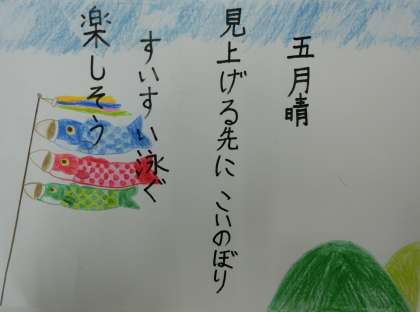 五月晴
見上げる先に こいのぼり
すいすい泳ぐ
楽しそう